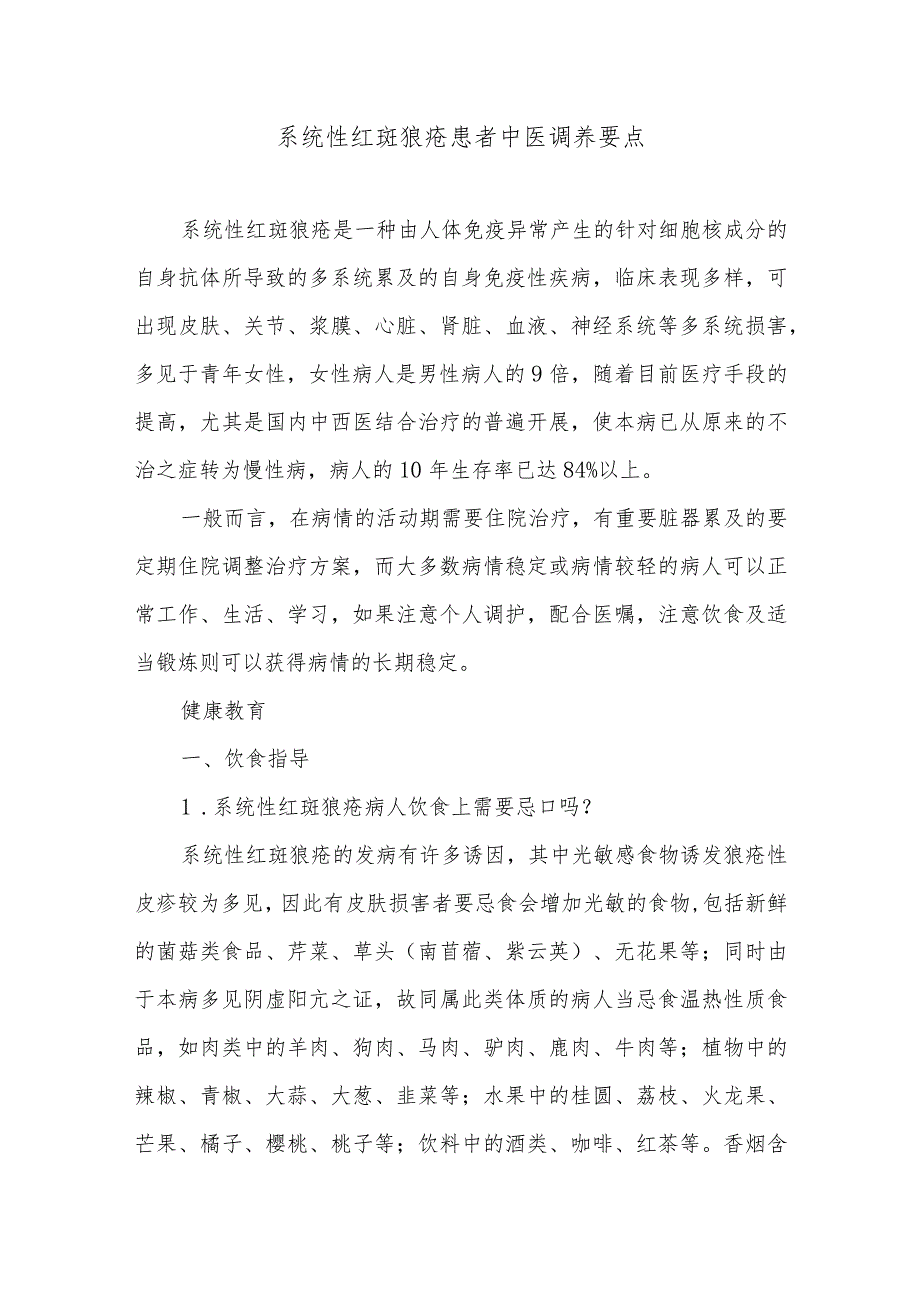 系统性红斑狼疮患者中医调养要点
系统性红斑狼疮是一种由人体免疫异常产生的针对细胞核成分的
自身抗体所导致的多系统累及的自身免疫性疾病，临床表现多样，可
出现皮肤、关节、浆膜、心脏、肾脏、血液、神经系统等多系统损害，
多见于青年女性，女性病人是男性病人的9倍，随着目前医疗手段的
提高，尤其是国内中西医结合治疗的普遍开展，使本病已从原来的不
治之症转为慢性病，病人的10年生存率已达84%以上。
一般而言，在病情的活动期需要住院治疗，有重要脏器累及的要
定期住院调整治疗方案，而大多数病情稳定或病情较轻的病人可以正
常工作、生活、学习，如果注意个人调护，配合医嘱，注意饮食及适
当锻炼则可以获得病情的长期稳定。
健康教育
一、饮食指导
1.系统性红斑狼疮病人饮食上需要忌口吗？
系统性红斑狼疮的发病有许多诱因，其中光敏感食物诱发狼疮性
皮疹较为多见，因此有皮肤损害者要忌食会增加光敏的食物,包括新鲜
的菌菇类食品、芹菜、草头（南苜蓿、紫云英）、无花果等；同时由
于本病多见阴虚阳亢之证，故同属此类体质的病人当忌食温热性质食
品，如肉类中的羊肉、狗肉、马肉、驴肉、鹿肉、牛肉等；植物中的
辣椒、青椒、大蒜、大葱、韭菜等；水果中的桂圆、荔枝、火龙果、
芒果、橘子、樱桃、桃子等；饮料中的酒类、咖啡、红茶等。香烟含